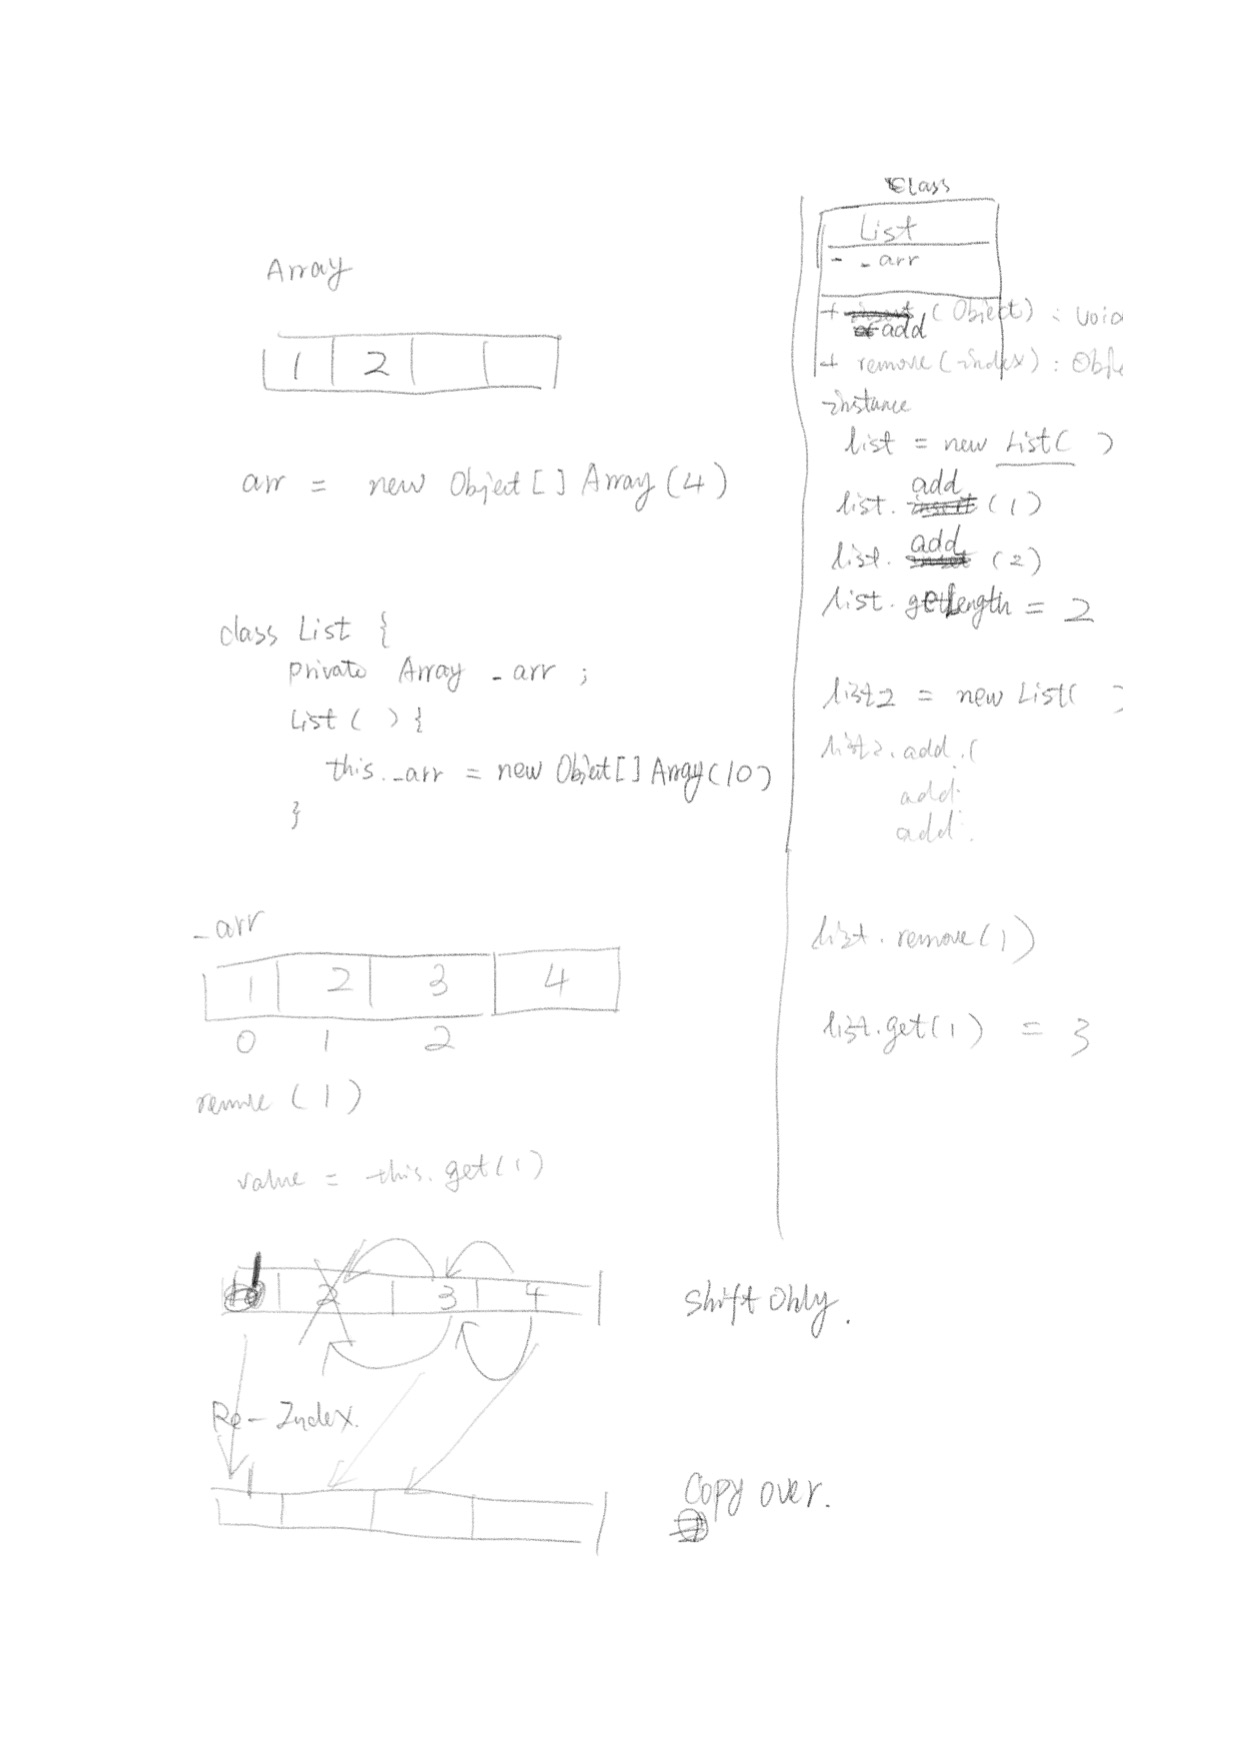 Array
1 2
arr = new Object[] Array(4)
class List {
private Array _arr ;
List ( ) {
this._arr = new Object[] Array(10)
}
_arr
1 2 3 4
0 1 2
remove (1)
value = this.get(1)
1 2 3 4
Shift Only.
Re-Index.
1
Copy over.
Class
List
- _arr
+ add (Object) : void
+ remove (index) : Obje
instance
list = new List( )
list. add (1)
list. add (2)
list. getLength = 2
list2 = new List( )
list2.add.(
add.
add.
list.remove(1)
list.get(1) = 3